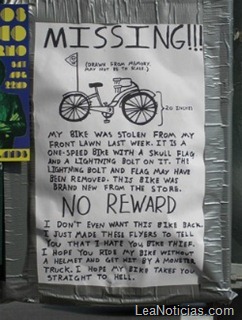 MISSING!!!
(DRAWN FROM MEMORY.
MAY NOT BE TO SCALE.)
20 INCHES
MY BIKE WAS STOLEN FROM MY
FRONT LAWN LAST WEEK. IT IS A
ONE-SPEED BIKE WITH A SKULL FLAG
AND A LIGHTNING BOLT ON IT. THE
LIGHTNING BOLT AND FLAG MAY HAVE
BEEN REMOVED. THIS BIKE WAS
BRAND NEW FROM THE STORE.
NO REWARD
I DON'T EVEN WANT THIS BIKE BACK.
I JUST MADE THESE FLYERS TO TELL
YOU THAT I HATE YOU BIKE THIEF.
I HOPE YOU RIDE MY BIKE WITHOUT
A HELMET AND GET HIT BY A MONSTER
TRUCK. I HOPE MY BIKE TAKES YOU
STRAIGHT TO HELL.
LeaNoticias.com